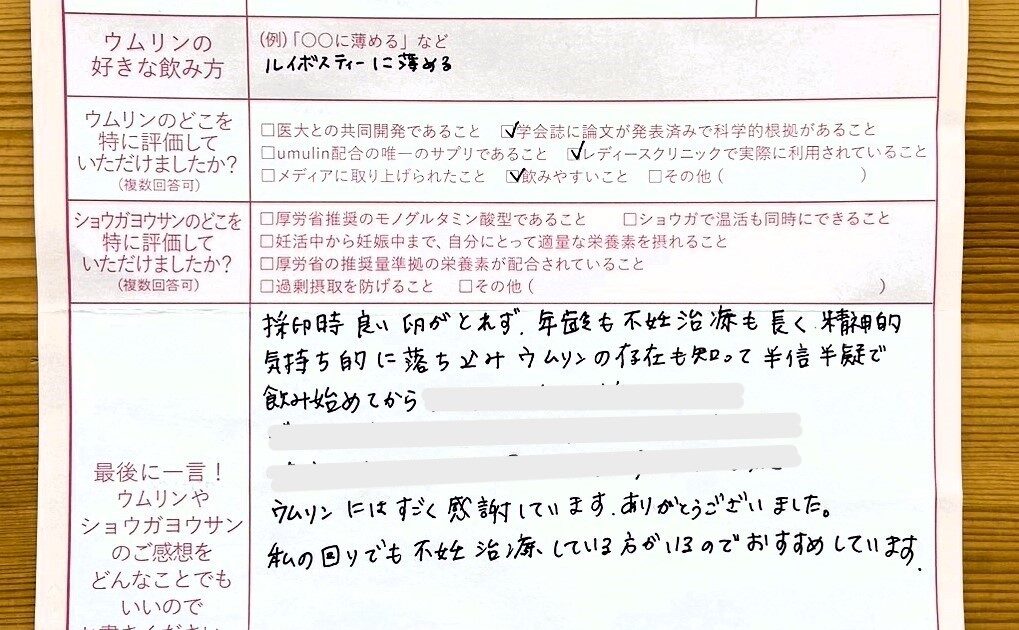 ウムリンの
好きな飲み方
(例)「〇〇に薄める」など
ルイボスティーに薄める
ウムリンのどこを
特に評価して
いただけましたか?
(複数回答可)
□医大との共同開発であること ☑学会誌に論文が発表済みで科学的根拠があること
□umulin配合の唯一のサプリであること ☑レディースクリニックで実際に利用されていること
□メディアに取り上げられたこと ☑飲みやすいこと □その他 ( )
ショウガヨウサンのどこを
特に評価して
いただけましたか?
(複数回答可)
□厚労省推奨のモノグルタミン酸型であること □ショウガで温活も同時にできること
□妊活中から妊娠中まで、自分にとって適量な栄養素を摂れること
□厚労省の推奨量準拠の栄養素が配合されていること
□過剰摂取を防げること □その他 ( )
最後に一言!
ウムリンや
ショウガヨウサン
のご感想を
どんなことでも
いいので
採卵時良い卵がとれず、年齢も不妊治療も長く精神的
気持ち的に落ち込みウムリンの存在も知って半信半疑で
飲み始めてから
ウムリンにはすごく感謝しています。ありがとうございました。
私の回りでも不妊治療している方がいるのでおすすめしています。